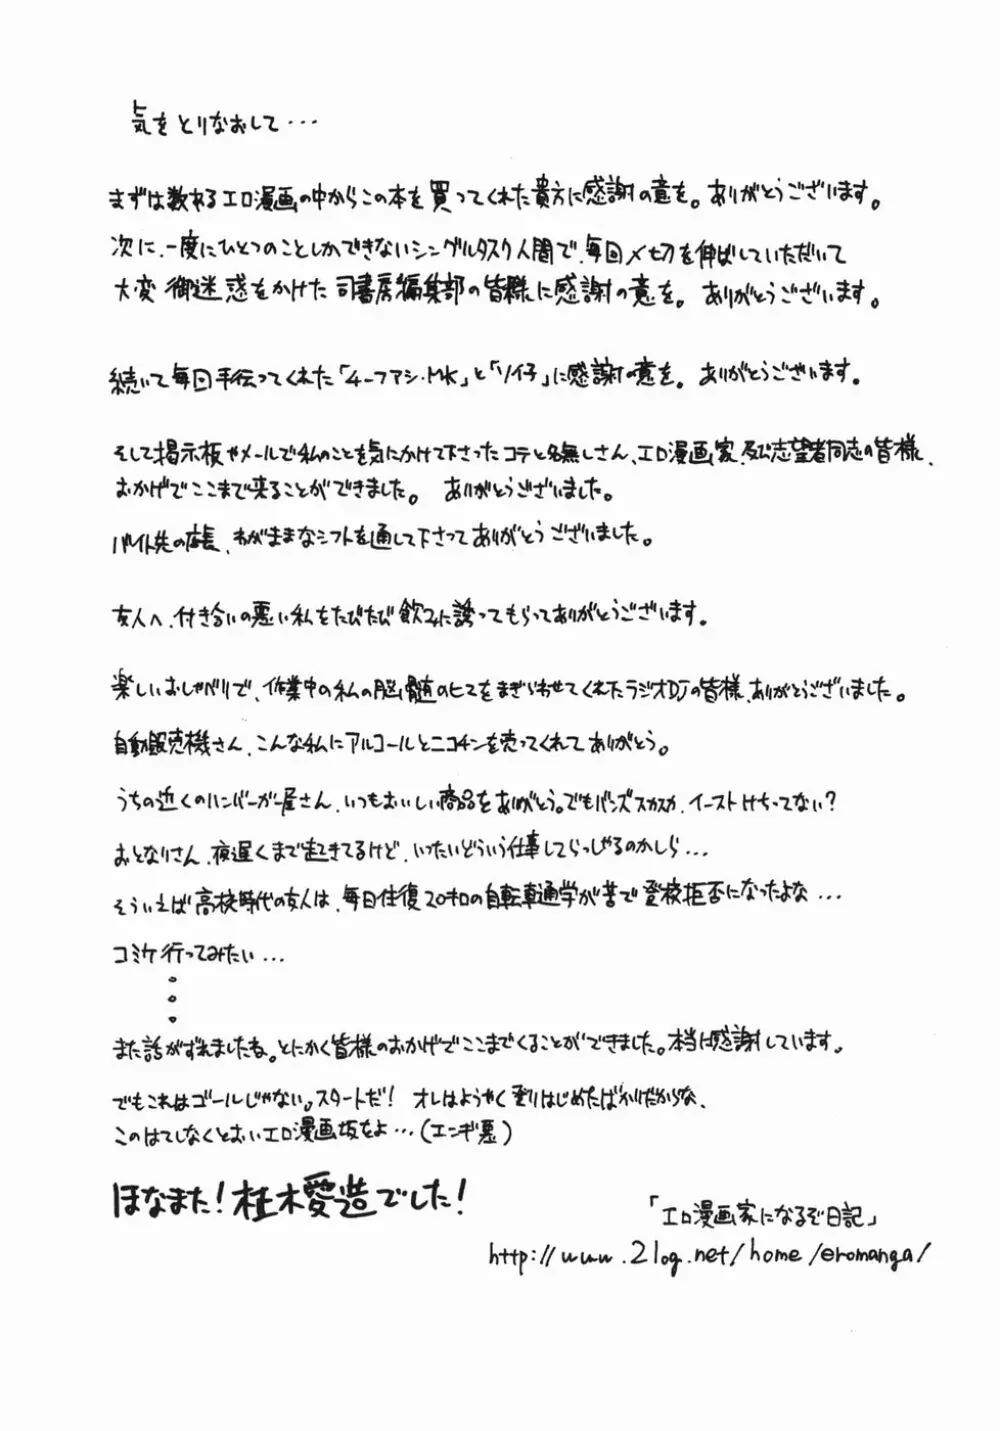 気をとりなおして…
まずは数あるエロ漫画の中からこの本を買ってくれた貴方に感謝の意を。ありがとうございます。
次に、一度にひとつのことしかできないシングルタスク人間で、毎回〆切を伸ばしていただいて
大変御迷惑をかけた司書房編集部の皆様に感謝の意を。ありがとうございます。
続いて毎回手伝ってくれた「4-ファシ・MK」と「ソイ子」に感謝の意を。ありがとうございます。
そして掲示板やメールで私のことを気にかけて下さったコテと名無しさん、エロ漫画家、及び志望者同志の皆様、
おかげでここまで来ることができました。ありがとうございました。
バイト先の店長、わがままなシフトを通して下さってありがとうございました。
友人へ、付き合いの悪い私をたびたび飲みに誘ってもらってありがとうございます。
楽しいおしゃべりで、作業中の私の脳髄のヒマをまぎらわせてくれたラジオDJの皆様、ありがとうございました。
自動販売機さん、こんな私にアルコールとニコチンを売ってくれてありがとう。
うちの近くのハンバーガー屋さん、いつもおいしい商品をありがとう。でもバンズスカスカ、イーストけちってない?
おとなりさん、夜遅くまで起きてるけど、いったいどういう仕事してらっしゃるのかしら…
そういえば高校時代の友人は、毎日往復20キロの自転車通学が苦で登校拒否になったよな…
コミケ行ってみたい…
。
。
。
また話がずれましたね。とにかく皆様のおかげでここまでくることができました。本当に感謝しています。
でもこれはゴールじゃない。スタートだ! オレはようやく登りはじめたばかりだからな、
このはてしなくとおいエロ漫画坂をよ…(エンギ悪)
ほなまた!桂木愛造でした!
「エロ漫画家になるぞ日記」
http://www.2log.net/home/eromanga/